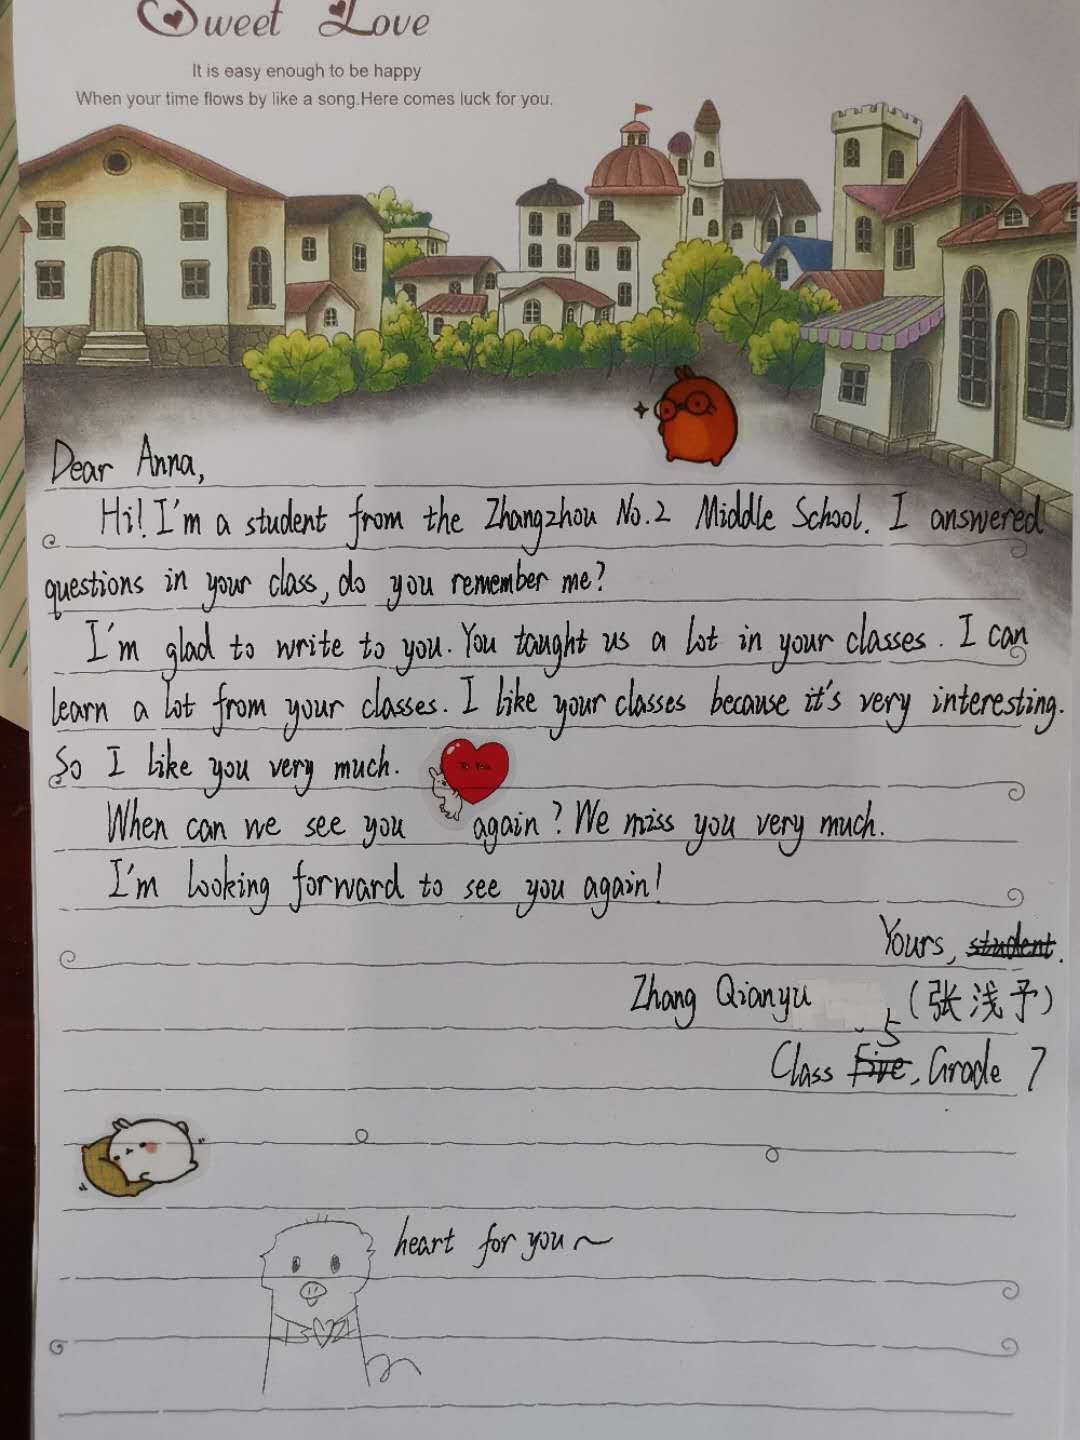 Sweet Love
It is easy enough to be happy
When your time flows by like a song.Here comes luck for you.
Dear Anna,
Hi! I'm a student from the Zhangzhou No.2 Middle School. I answered
questions in your class, do you remember me?
I'm glad to write to you. You taught us a lot in your classes. I can
learn a lot from your classes. I like your classes because it's very interesting.
So I like you very much.
When can we see you again? We miss you very much.
I'm looking forward to see you again!
Yours, student.
Zhang Qianyu (张浅予)
5
Class Five, Grade 7
heart for you~